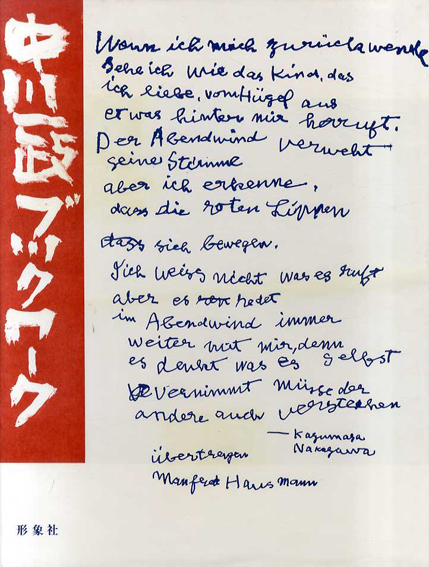 中川一政ブックワーク
Wenn ich mich zurückwende
Sehe ich wie das Kind, das
ich liebe, vom Hügel aus
etwas hinter mir herruft.
Der Abendwind verweht
seine Stimme
aber ich erkenne,
dass die roten Lippen
sich bewegen.
Ich weiss nicht was es ruft
aber es redet
im Abendwind immer
weiter mit mir, denn
es denkt was es selbst
vernimmt müsse der
andere auch verstehen
— Kazumasa
Nakagawa
übertragen
Manfred Hausmann
形象社